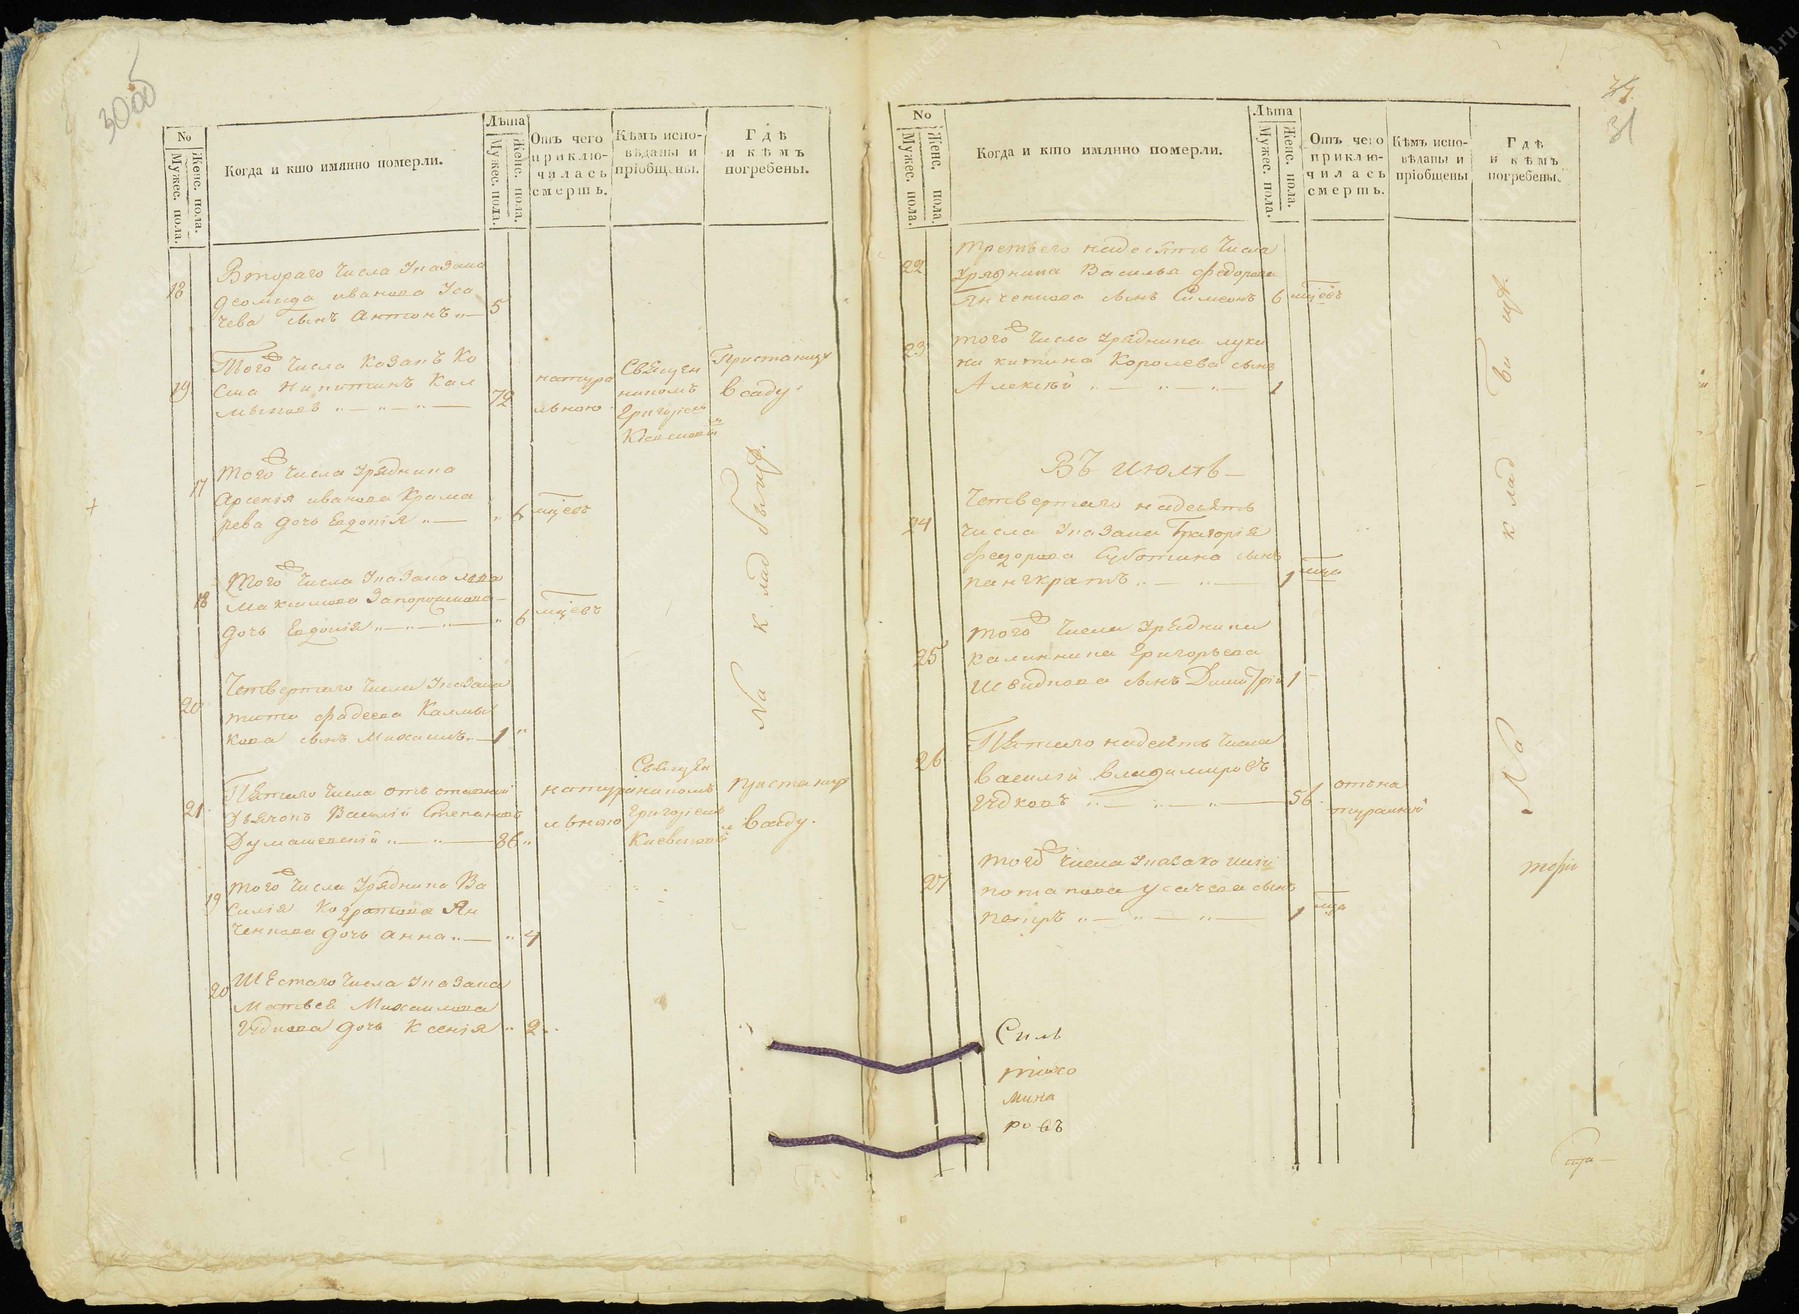 3000
No
Мужес. пола.
Женс. пола.
Когда и кто имянно померли.
Лѣта
Мужес. пола.
Женс. пола.
Отъ чего
приклю-
чилась
смерть.
Кѣмъ испо-
вѣданы и
прiобщены.
Гдѣ
и кѣмъ
погребены.
18
Втораго числа Указака
Деомида иванова Уса
чева сынъ Антонъ
5
19
Того числа Казакъ Ко
сма Никитинъ Кал
мыковъ
72
натура
льною
Священ
никомъ
Григорiем
Пристанищу
в саду
17
Того числа Урядника
Арсенiя иванова Крама
рева дочь Евдокiя
6
мцевъ
18
Того числа Указака
Максимова Запорожцова
дочь Евдокiя
6
мцевъ
20
Четвертаго числа Указака
тита фадеева Калмы
кова сынъ Михаилъ
1
21
Пятаго числа отставной
Дьячокъ Василiй Степановъ
Думашевскiй
86
натура
льною
Священ
никомъ
Григорiем
Киевскимъ
в саду.
19
Того числа Урядника Ва
силiя Кодратова Ян
ченкова дочь Анна
4
20
Шестаго числа Указака
Матвея Михаилова
Гудкова дочь Ксенiя
2
На кладбищѣ
31
No
Мужес. пола.
Женс. пола.
Когда и кто имянно померли.
Лѣта
Мужес. пола.
Женс. пола.
Отъ чего
приклю-
чилась
смерть.
Кѣмъ испо-
вѣданы и
прiобщены
Гдѣ
и кѣмъ
погребены.
22
Третьего надесять числа
Урядника Василья Федорова
Янченкова сынъ Симеонъ
6
мцевъ
23
Того числа Урядника луки
никитина Королева сынъ
Алексѣй
1
Въ Июлѣ
24
Четвертаго надесять
числа Указака Григорiя
Федорова Суботина сынъ
панкратъ
1
мца
25
Того числа Урядника
калинника Григорьева
Шведкова сынъ Димитрiй
1
26
Пятаго надесять числа
Василiй Владимировъ
Гудковъ
56
отъ на
туральной
27
Того числа Указака
потапова Усачева сынъ
петръ
1
мца
На кладбищѣ
Силь
тного
Мина
ровъ